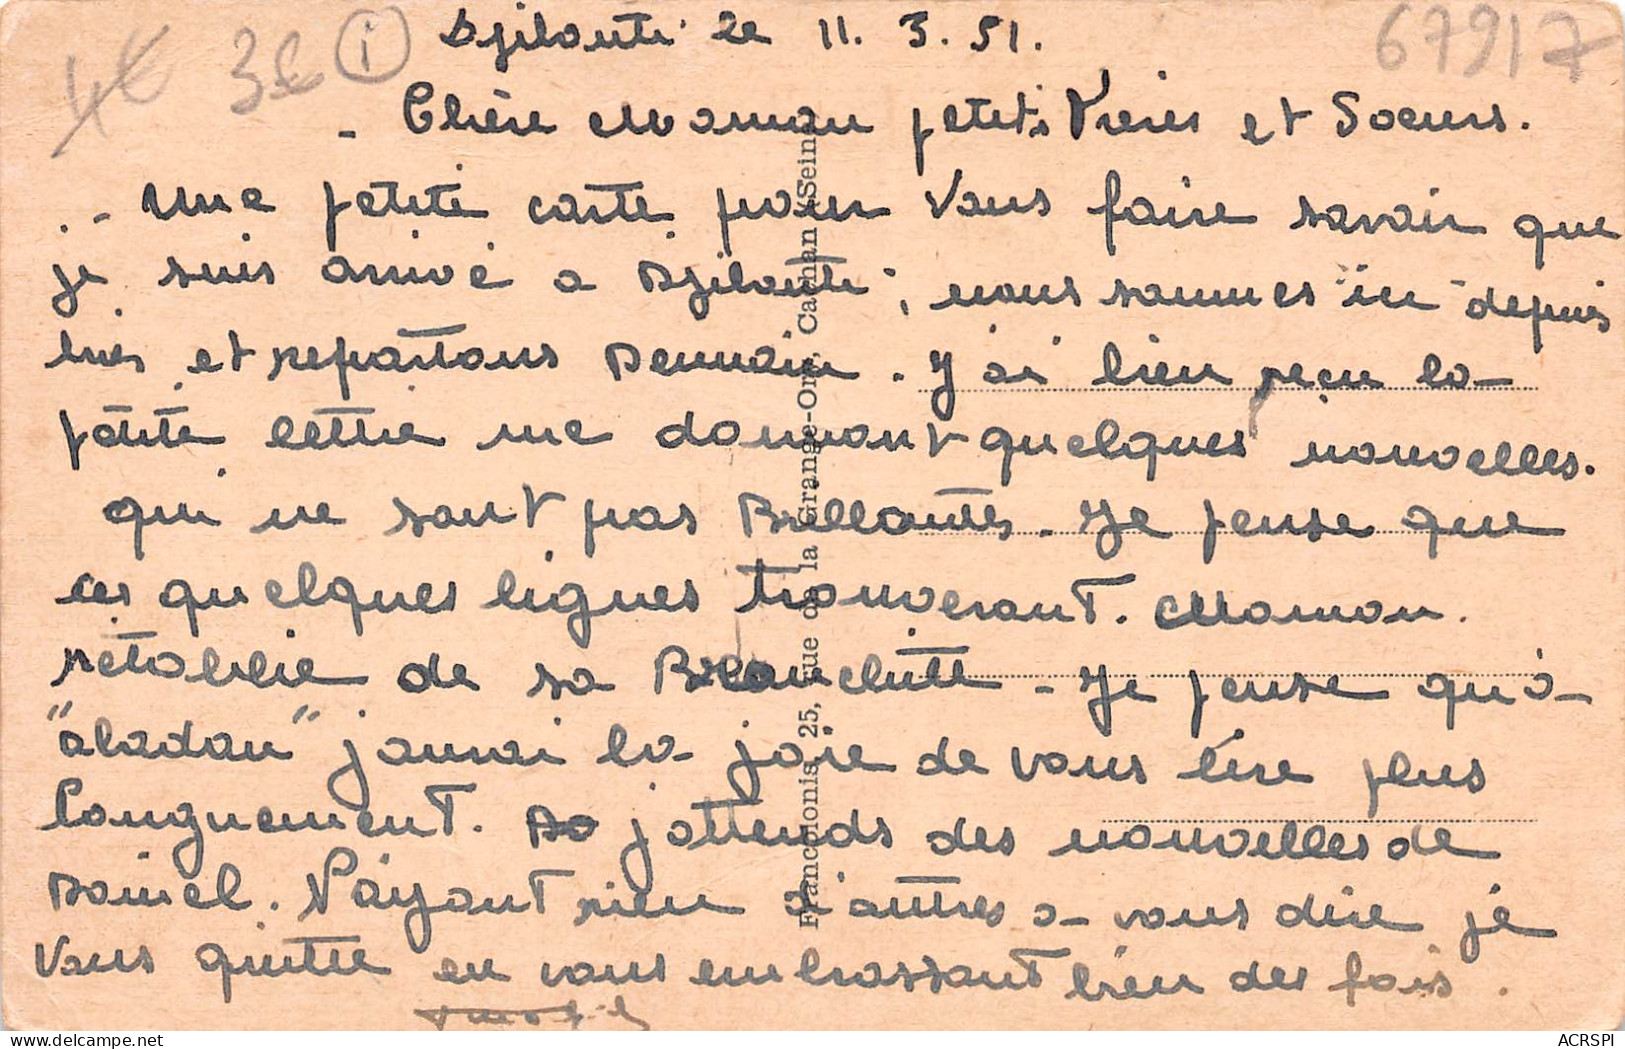 4€ 3€ i 67917
Djibouti le 11.3.51.
- Chère Maman petits Frères et Soeurs.
- Une petite carte pour vous faire savoir que
je suis arrivé a Djibouti, nous sommes ici depuis
hier et repartons Demain. J'ai bien reçu la
petite lettre me donnant quelques nouvelles.
qui ne sont pas Brillantes. Je pense que
ces quelques lignes trouveront. Maman.
rétablie de sa Bronchite - Je pense qu'à
"abadan" j'aurai la joie de vous lire plus
longuement. j'attends des nouvelles de
Daniel. N'ayant rien d'autres a vous dire je
vous quitte en vous embrassant bien des fois.
Francolonis, 25, rue de la Grange-Ory, Cachan (Seine)
delcampe.net
ACRSPI